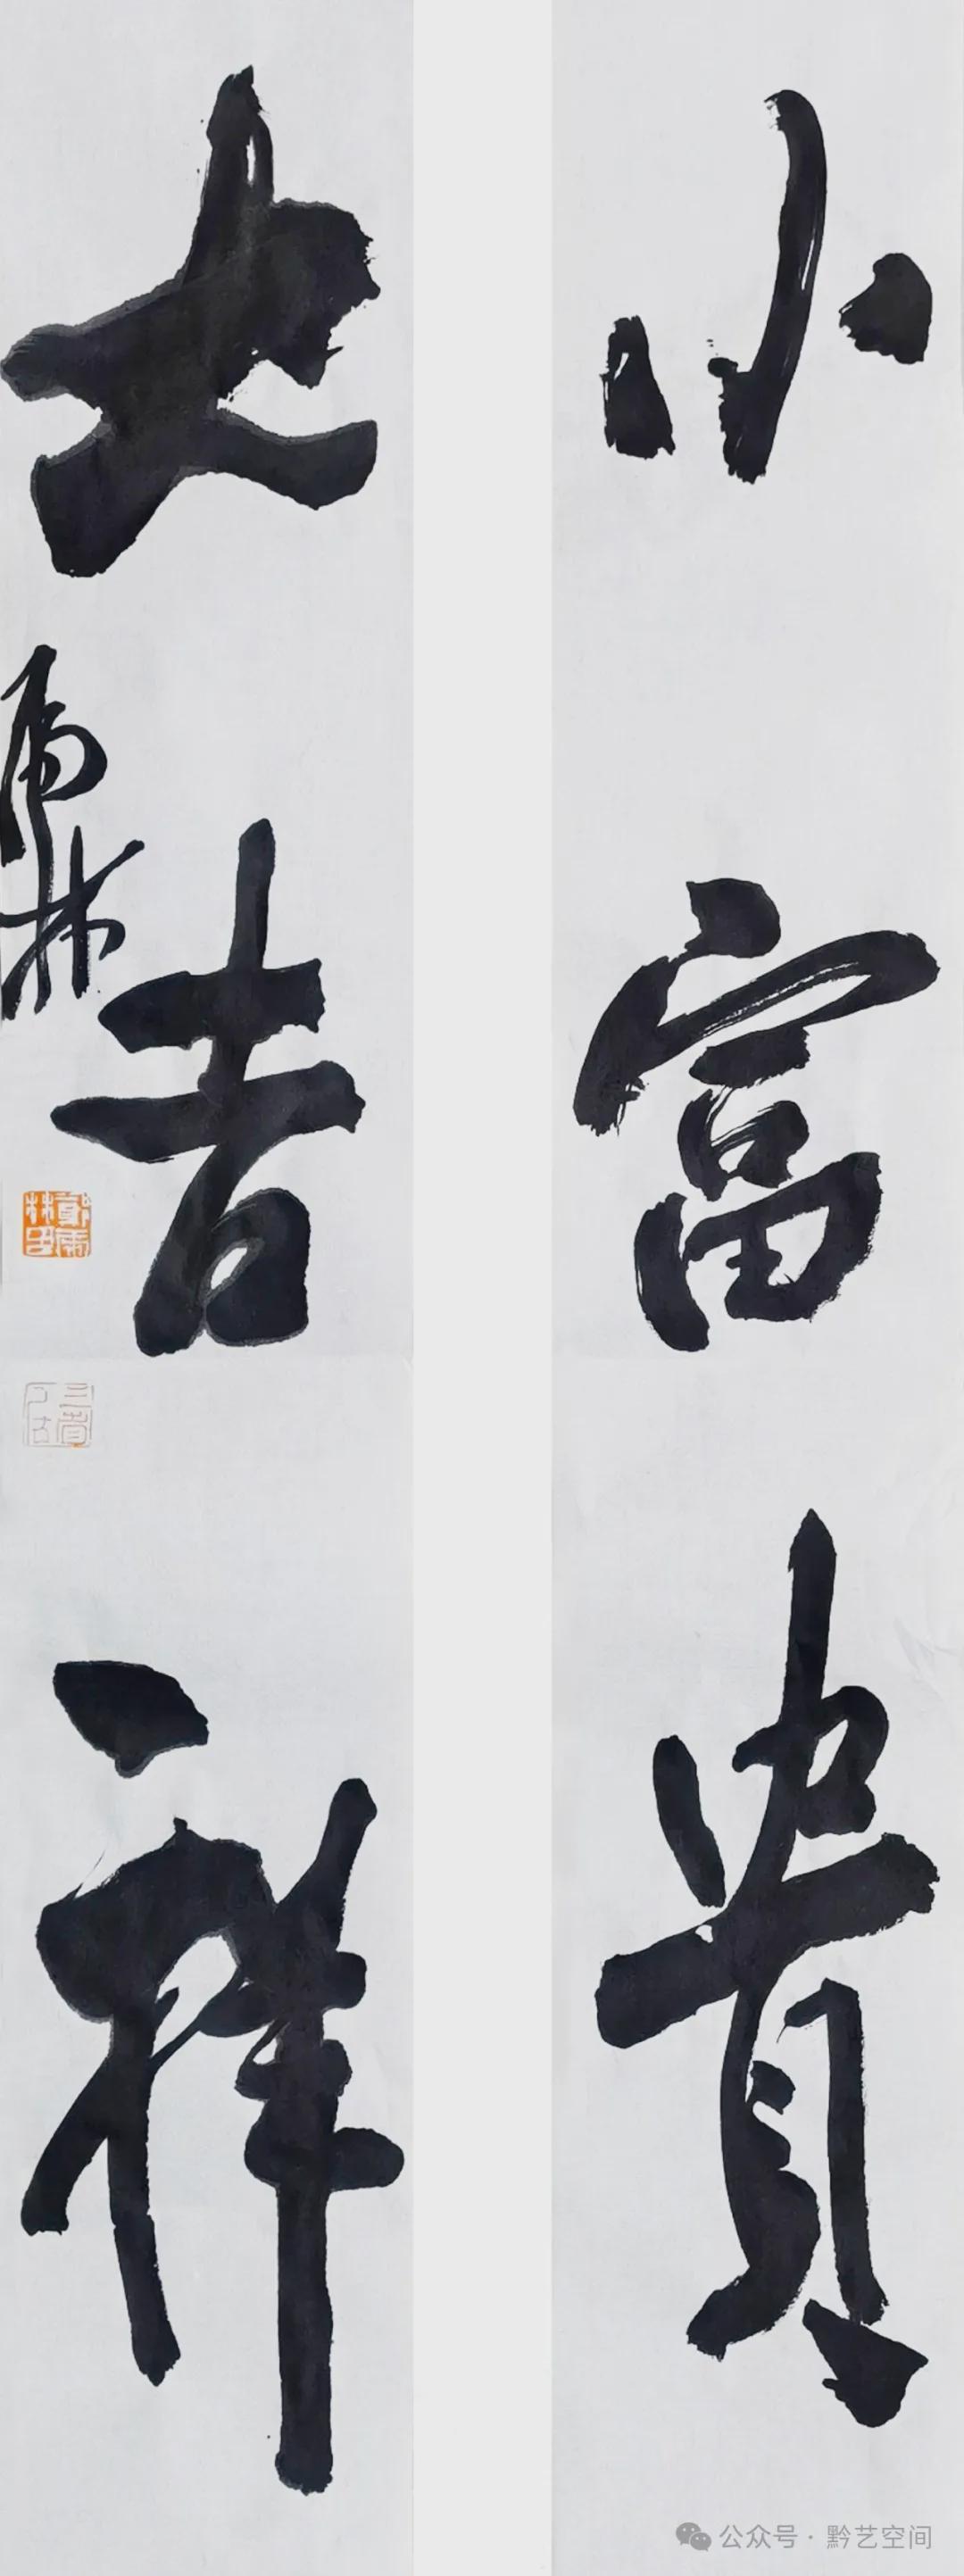 小富贵
大吉祥
雨林
公众号·黔艺空间